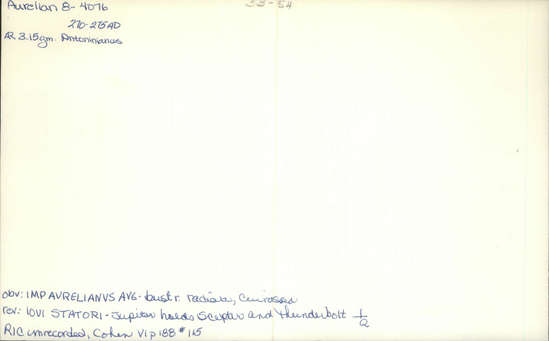 Aurelian 8-4076
33-54
270-275AD
AR 3.15gm. Antoninianus
obv: IMP AVRELIANVS AVG-bust r. radiate, Cuirassed
rev: IOVI STATORI-Jupiter holds Scepter and thunderbolt 1/Q
RIC unrecorded, Cohen VI p188 #115